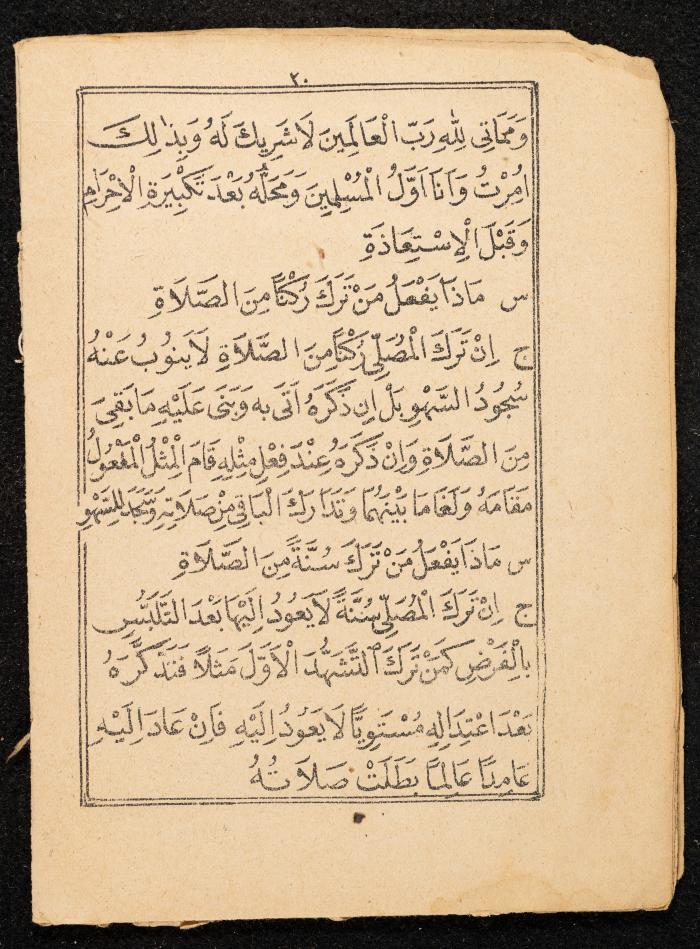 ٢٠
وَمَمَاتِى لِلّٰهِ رَبِّ الْعَالَمِينَ لَا شَرِيكَ لَهُ وَبِذٰلِكَ
اُمِرْتُ وَاَنَا اَوَّلُ الْمُسْلِمِينَ وَمَحَلُّهُ بَعْدَ تَكْبِيرَةِ الْاِحْرَامِ
وَقَبْلَ الْاِسْتِعَاذَةِ
س مَاذَا يَفْعَلُ مَنْ تَرَكَ رُكْنًا مِنَ الصَّلَاةِ
ج اِنْ تَرَكَ الْمُصَلِّى رُكْنًا مِنَ الصَّلَاةِ لَا يَنُوبُ عَنْهُ
سُجُودُ السَّهْوِ بَلْ اِنْ ذَكَرَهُ اَتَى بِهِ وَبَنَى عَلَيْهِ مَا بَقِىَ
مِنَ الصَّلَاةِ وَاِنْ ذَكَرَهُ عِنْدَ فِعْلِ مِثْلِهِ قَامَ الْمِثْلُ الْمَفْعُولُ
مَقَامَهُ وَلَغَا مَا بَيْنَهُمَا وَتَدَارَكَ الْبَاقِى مِنْ صَلَاتِهِ وَسَجَدَ لِلسَّهْوِ
س مَاذَا يَفْعَلُ مَنْ تَرَكَ سُنَّةً مِنَ الصَّلَاةِ
ج اِنْ تَرَكَ الْمُصَلِّى سُنَّةً لَا يَعُودُ اِلَيْهَا بَعْدَ التَّلَبُّسِ
بِالْفَرْضِ كَمَنْ تَرَكَ التَّشَهُّدَ الْاَوَّلَ مَثَلًا فَتَذَكَّرَهُ
بَعْدَ اعْتِدَالِهِ مُسْتَوِيًا لَا يَعُودُ اِلَيْهِ فَاِنْ عَادَ اِلَيْهِ
عَامِدًا عَالِمًا بَطَلَتْ صَلَاتُهُ